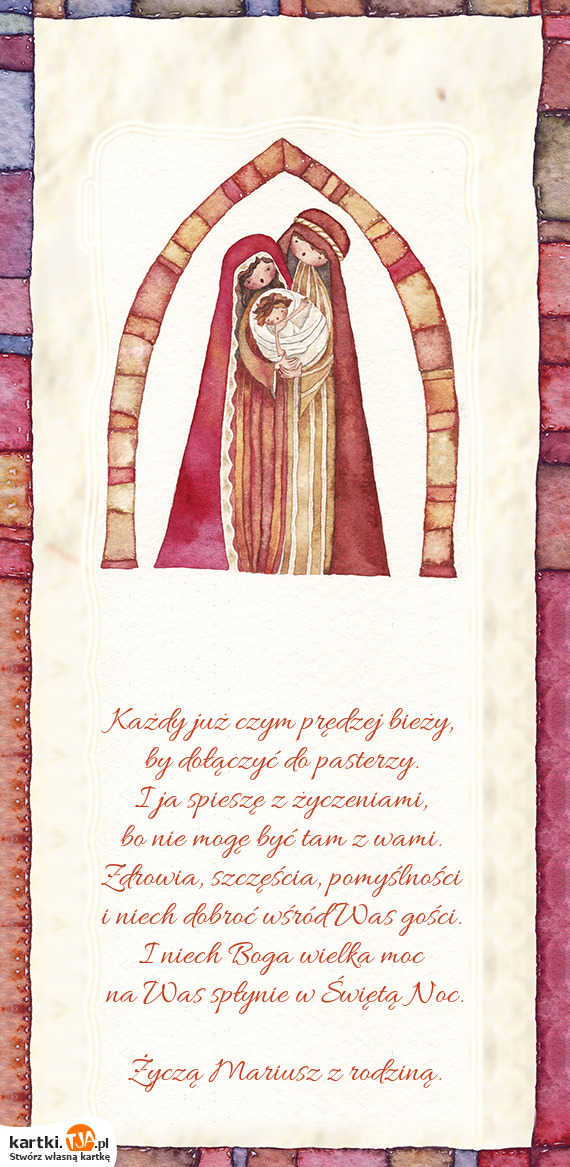 Każdy już czym prędzej bieży,
by dołączyć do pasterzy.
I ja spieszę z życzeniami,
bo nie mogę być tam z wami.
Zdrowia, szczęścia, pomyślności
i niech dobroć wśród Was gości.
I niech Boga wielka moc
na Was spłynie w Świętą Noc.
Życzą Mariusz z rodziną.
kartki.TJA.pl
Stwórz własną kartkę